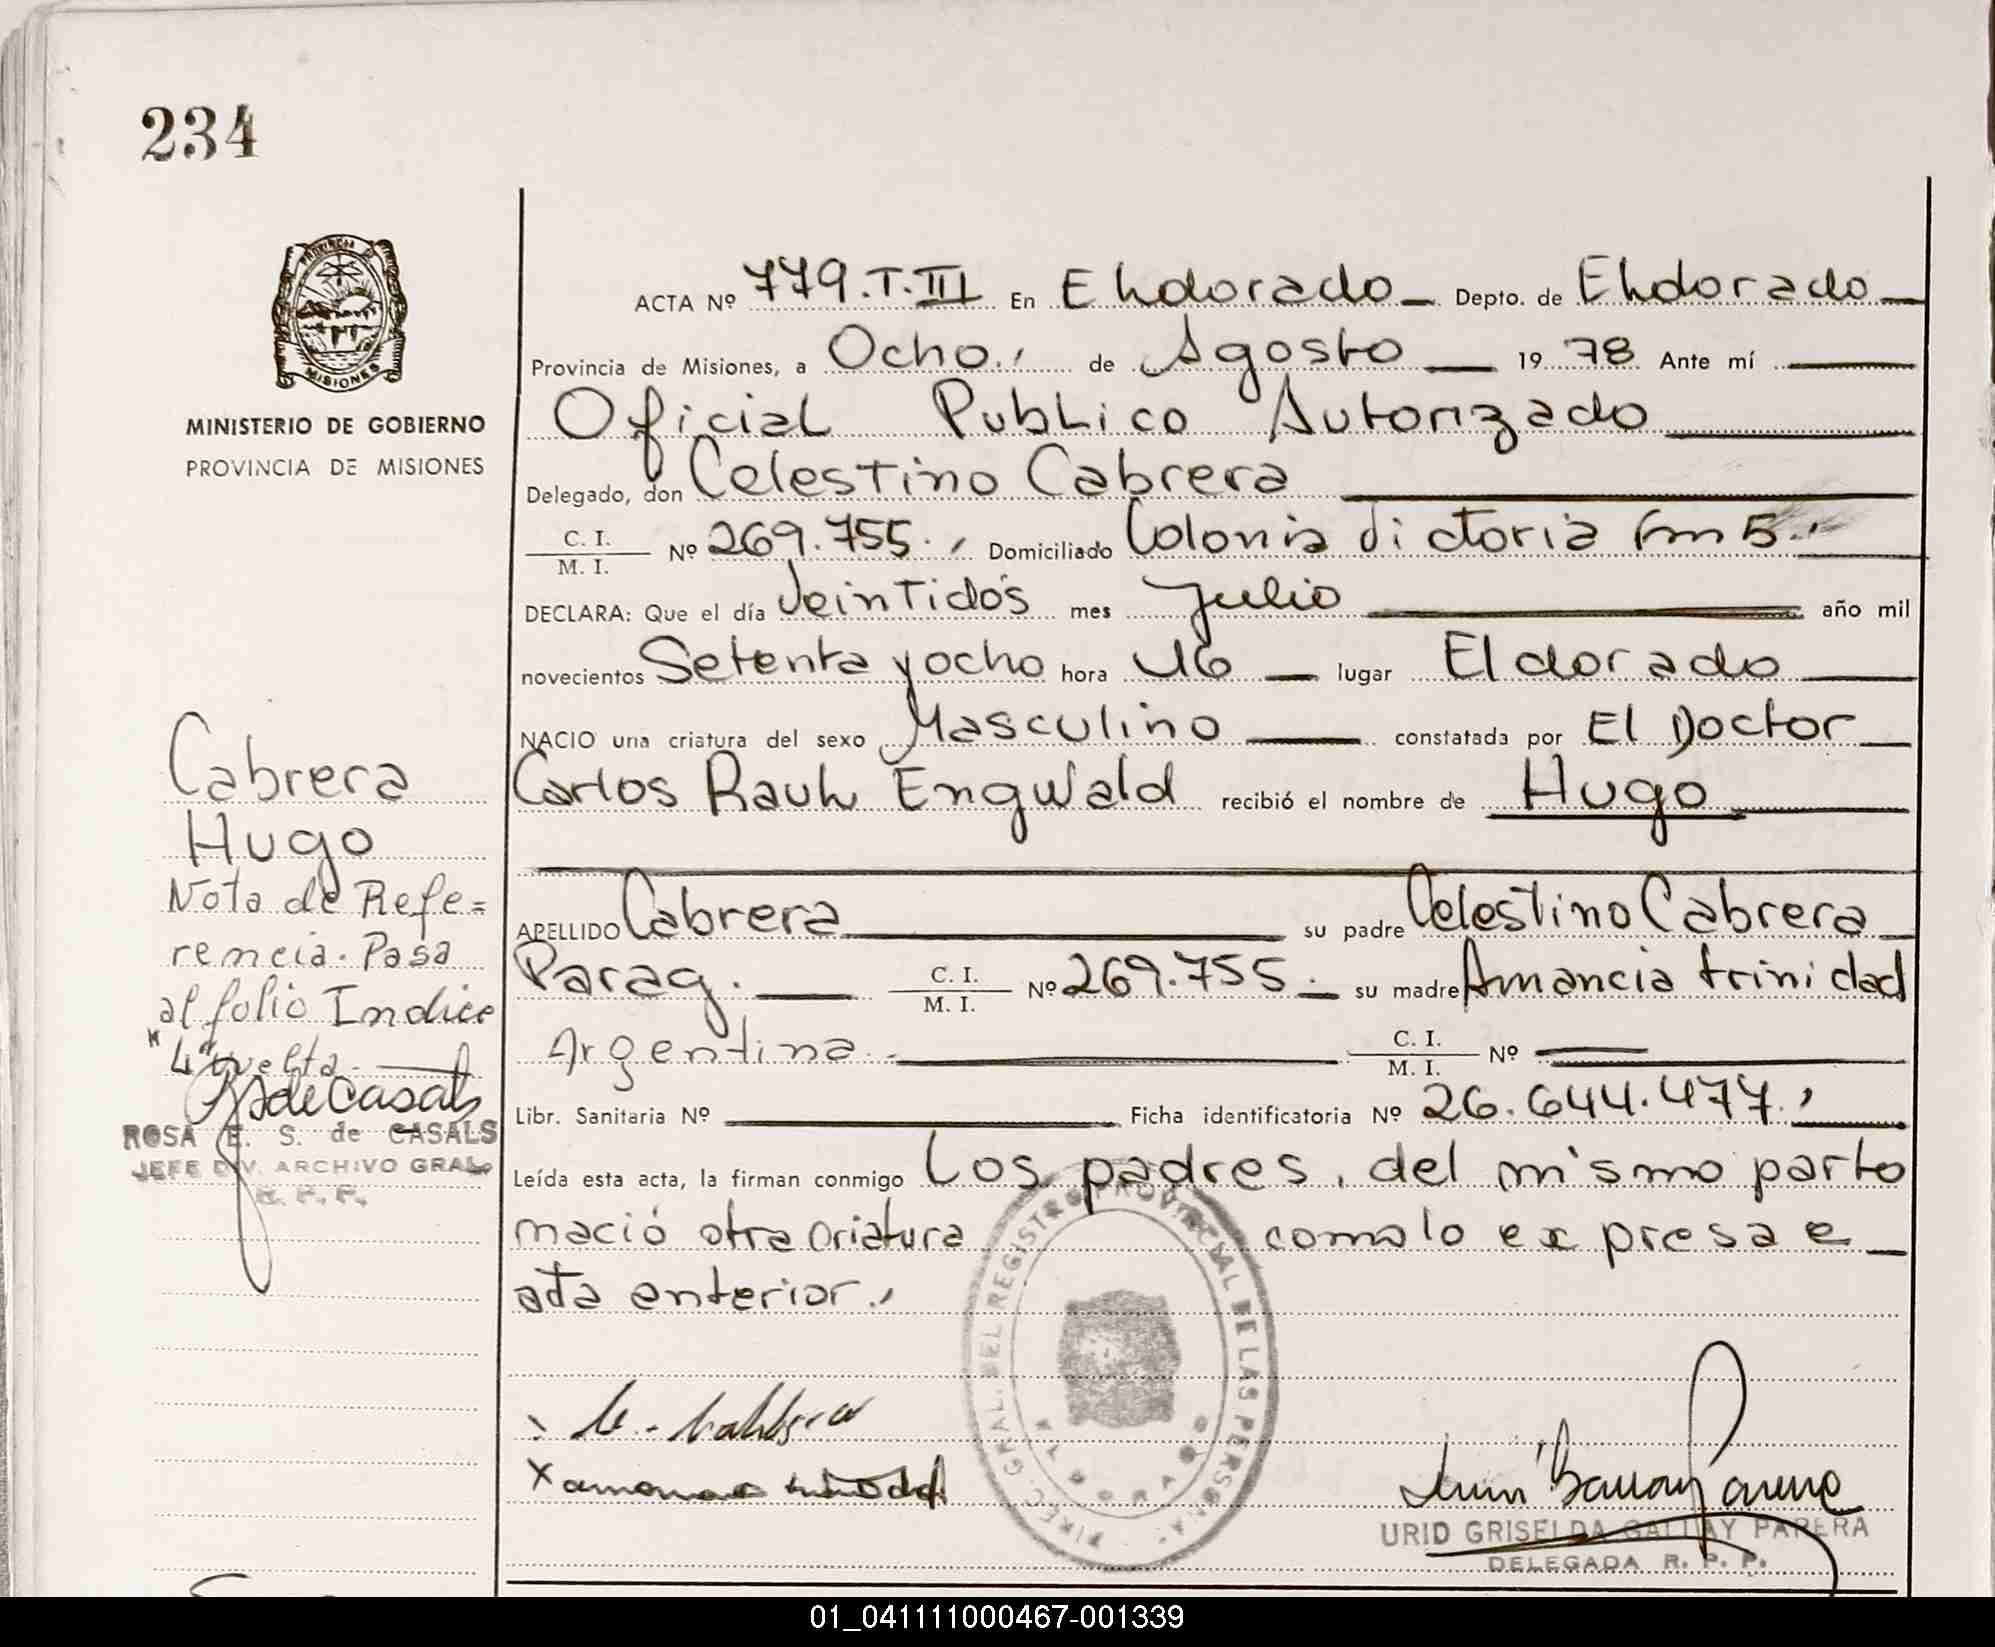 234
PROVINCIA D
MISIONES
MINISTERIO DE GOBIERNO
PROVINCIA DE MISIONES
ACTA Nº 779.T.III En Eldorado Depto. de Eldorado
Provincia de Misiones, a Ocho., de Agosto 19 78 Ante mí
Oficial Publico Autorizado
Delegado, don Celestino Cabrera
C. I.
M. I.
Nº 269.755., Domiciliado Colonia Victoria Km 5.,
DECLARA: Que el día Veintidós mes Julio año mil
novecientos Setenta y ocho hora 16 lugar Eldorado
NACIO una criatura del sexo Masculino constatada por El Doctor
Carlos Raul Engwald recibió el nombre de Hugo
APELLIDO Cabrera su padre Celestino Cabrera
Parag. C. I.
M. I.
Nº 269.755. su madre Amancia trinidad
Argentina. C. I.
M. I.
Nº
Libr. Sanitaria Nº Ficha identificatoria Nº 26.644.477.,
Leída esta acta, la firman conmigo Los padres, del mismo parto
nació otra criatura como lo expresa e
acta anterior.,
Cabrera
Hugo
Nota de Refe=
rencia. Pasa
al folio Indice
"4" vuelta.
RSdeCasals
ROSA E. S. de CASALS
JEFE DIV. ARCHIVO GRAL.
R. P. P.
DIREC. GRAL. DEL REGISTRO PROVINCIAL DE LAS PERSONAS
ELDORADO
x amancia trinidad
URID GRISELDA GALLAY PARERA
DELEGADA R. P. P.
01_041111000467-001339